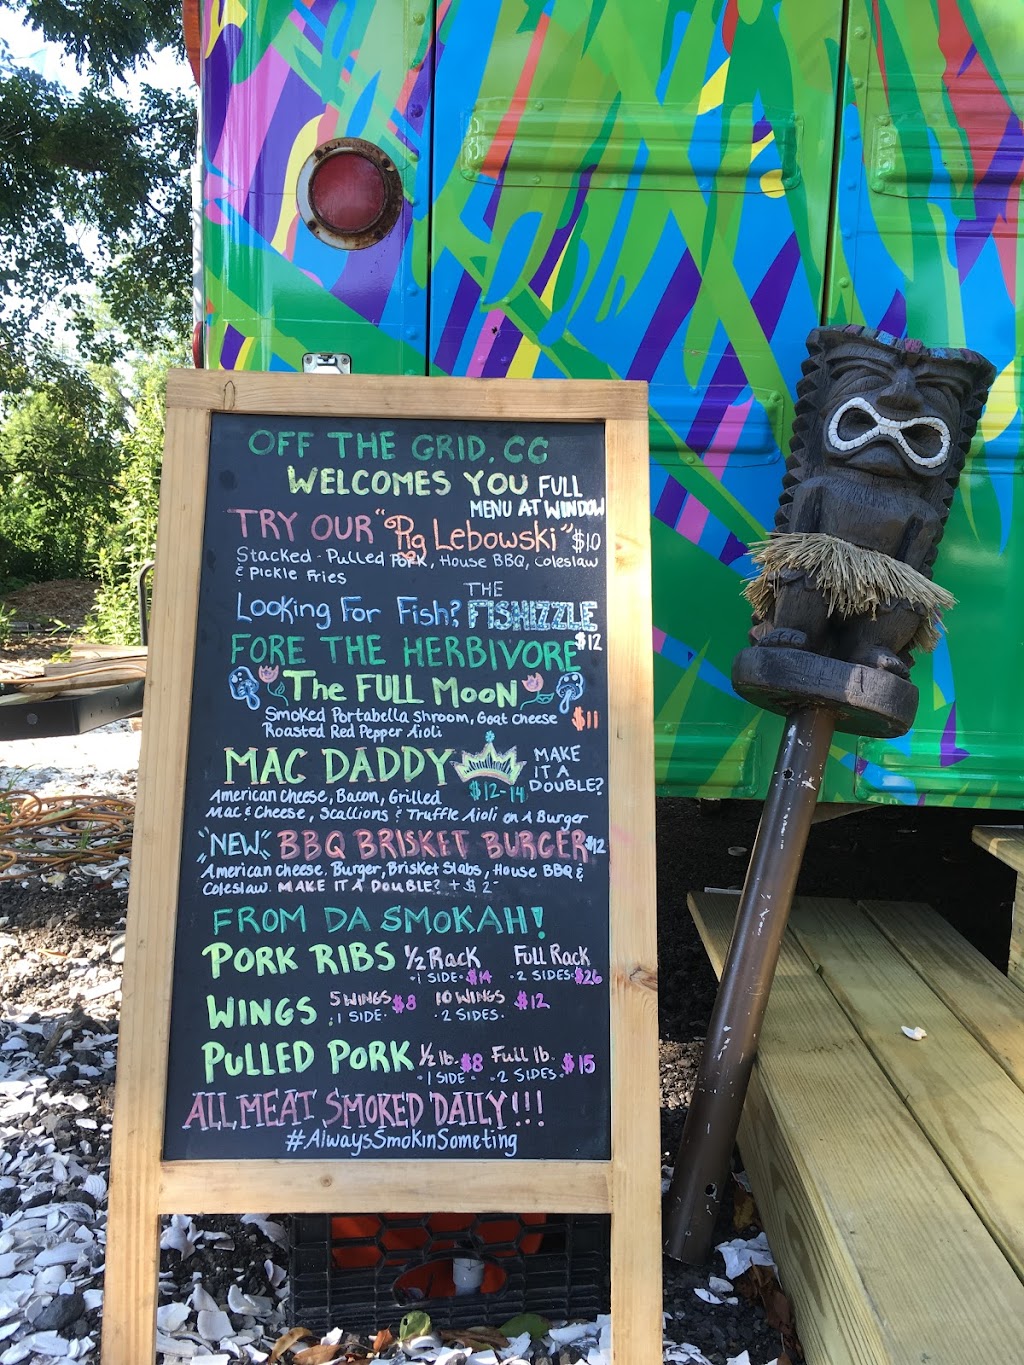 OFF THE GRID. CG
WELCOMES YOU FULL
MENU AT WINDOW
TRY OUR "Pig Lebowski" $10
Stacked - Pulled PORK, House BBQ, Coleslaw
& Pickle Fries
Looking For Fish? THE FISHIZZLE
$12
FORE THE HERBIVORE
The FULL MOON
Smoked Portabella Shroom, Goat Cheese $11
Roasted Red Pepper Aioli
MAC DADDY MAKE IT A DOUBLE?
$12-14
American Cheese, Bacon, Grilled
Mac & Cheese, Scallions & Truffle Aioli on A Burger
"NEW" BBQ BRISKET BURGER $12
American Cheese, Burger, Brisket Slabs, House BBQ &
Coleslaw. MAKE IT A DOUBLE? + $2-
FROM DA SMOKAH!
PORK RIBS 1/2 Rack Full Rack
·1 SIDE· $14 ·2 SIDES· $26
WINGS 5 WINGS $8 10 WINGS $12
·1 SIDE· ·2 SIDES·
PULLED PORK 1/2 lb. $8 Full lb. $15
·1 SIDE· ·2 SIDES·
ALL MEAT SMOKED DAILY!!!
#AlwaysSmokinSometing